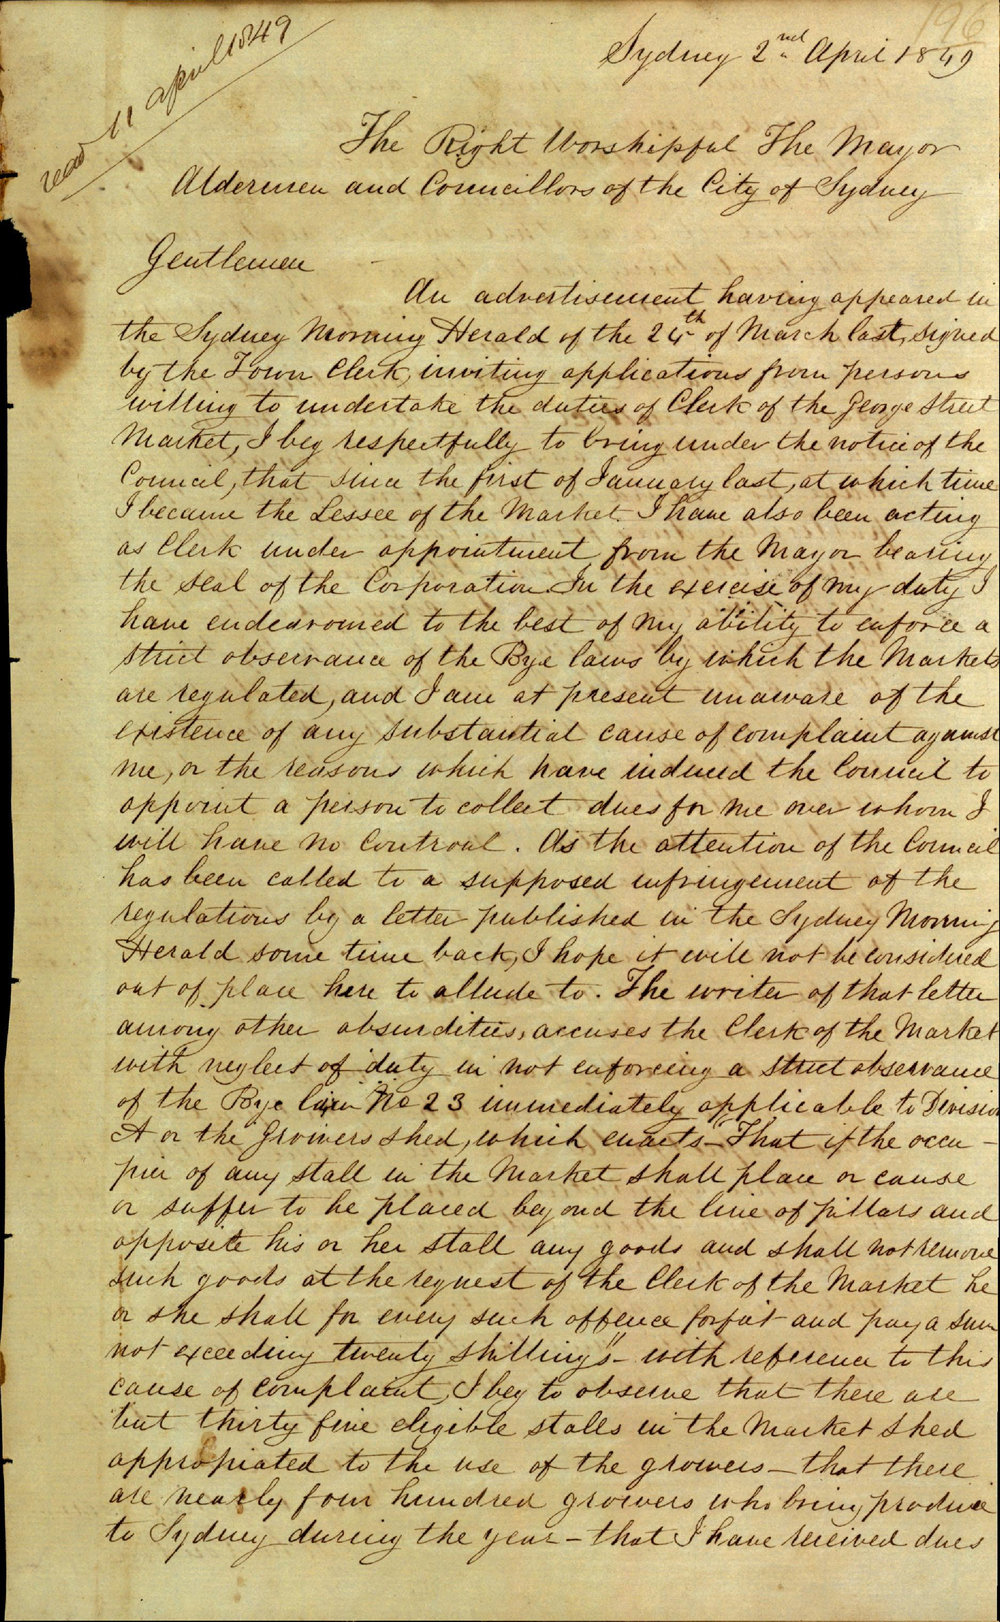 196
read 11 april 1849
Sydney 2nd April 1849
The Right Worshipful The Mayor
Aldermen and Councillors of the City of Sydney
Gentlemen
An advertisement having appeared in
the Sydney Morning Herald of the 24th of March last, signed
by the Town Clerk, inviting applications from persons
willing to undertake the duties of Clerk of the George Street
Market, I beg respectfully to bring under the notice of the
Council, that since the first of January last, at which time
I became the Lessee of the Market. I have also been acting
as Clerk under appointment from the Mayor bearing
the seal of the Corporation. In the exercise of my duty I
have endeavoured to the best of my ability to enforce a
strict observance of the Bye laws by which the Markets
are regulated, and I am at present unaware of the
existence of any substantial cause of complaint against
me, or the reasons which have induced the Council to
appoint a person to collect dues for me over whom I
will have no Controul. As the attention of the Council
has been called to a supposed infringement of the
regulations by a letter published in the Sydney Morning
Herald some time back, I hope it will not be considered
out of place here to allude to. The writer of that letter
among other absurdities, accuses the Clerk of the Market
with neglect of duty in not enforcing a strict observance
of the Bye law No 23 immediately applicable to Division
A or the Growers shed, which enacts - "That if the occu-
pier of any stall in the Market shall place or cause
or suffer to be placed beyond the line of pillars and
opposite his or her stall any goods and shall not remove
such goods at the request of the Clerk of the Market he
or she shall for every such offence forfeit and pay a sum
not exceeding twenty shillings" - with reference to this
cause of complaint, I beg to observe that there are
but thirty five eligible stalls in the Market shed
appropiated to the use of the growers - that there
are nearly four hundred growers who bring produce
to Sydney during the year - that I have received dues